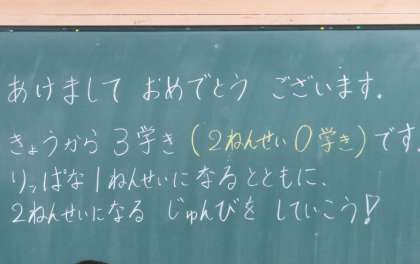 あけまして おめでとう ございます。
きょうから 3学き (2ねんせい 0学き) です。
りっぱな 1ねんせいに なるとともに、
2ねんせいになる じゅんびを していこう!